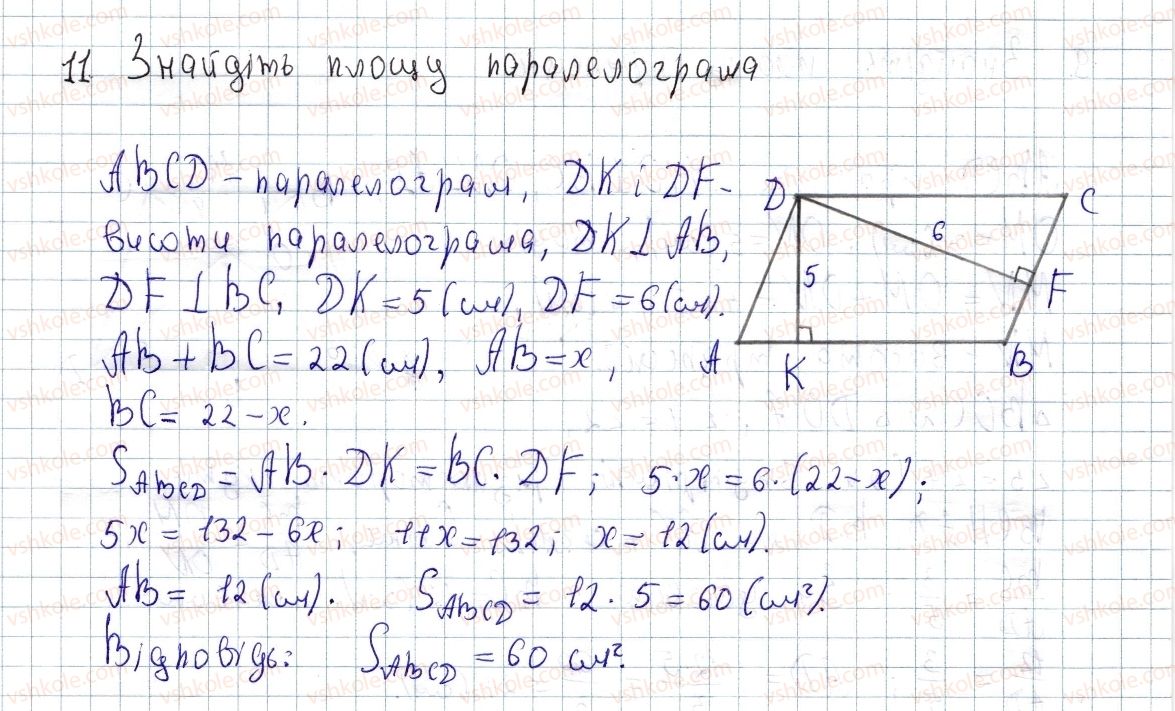 11. Знайдіть площу паралелограма
ABCD – паралелограм, DK і DF –
висоти паралелограма, DK ⊥ AB,
DF ⊥ BC, DK = 5 (см), DF = 6 (см).
AB + BC = 22 (см), AB = x,
BC = 22 - x.
S ABCD = AB · DK = BC · DF; 5·x = 6·(22-x);
5x = 132 - 6x; 11x = 132; x = 12 (см).
AB = 12 (см). S ABCD = 12 · 5 = 60 (см²).
Відповідь: S ABCD = 60 см².
D C
6
5 F
A K B
vshkole.com